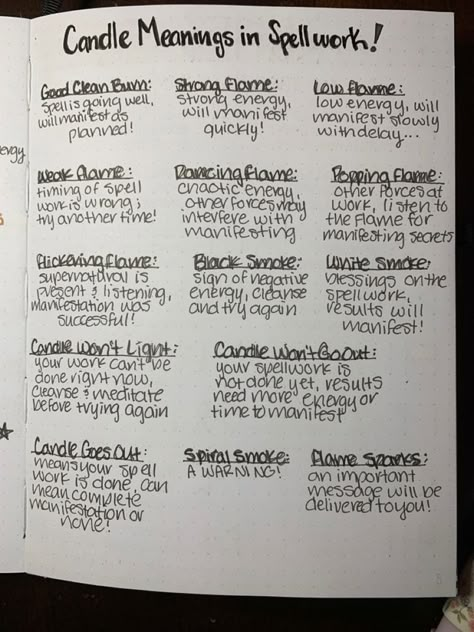 Candle Meanings in Spellwork!
Good Clean Burn:
spell is going well,
will manifest as
planned!
Strong Flame:
strong energy,
will manifest
quickly!
Low Flame:
low energy, will
manifest slowly
with delay...
Weak Flame:
timing of spell
work is wrong;
try another time!
Dancing Flame:
chaotic energy,
other forces may
interfere with
manifesting
Popping Flame:
other forces at
work, listen to
the flame for
manifesting secrets
Flickering Flame:
supernatural is
present & listening,
manifestation was
successful!
Black Smoke:
sign of negative
energy, cleanse
and try again
White Smoke:
blessings on the
spellwork,
results will
manifest!
Candle Won't Light:
your work can't be
done right now,
cleanse & meditate
before trying again
Candle Won't Go Out:
your spellwork is
not done yet, results
need more energy or
time to manifest
Candle Goes Out:
means your spell
work is done, can
mean complete
manifestation or
none!
Spiral Smoke:
A WARNING!
Flame Sparks:
an important
message will be
delivered to you!